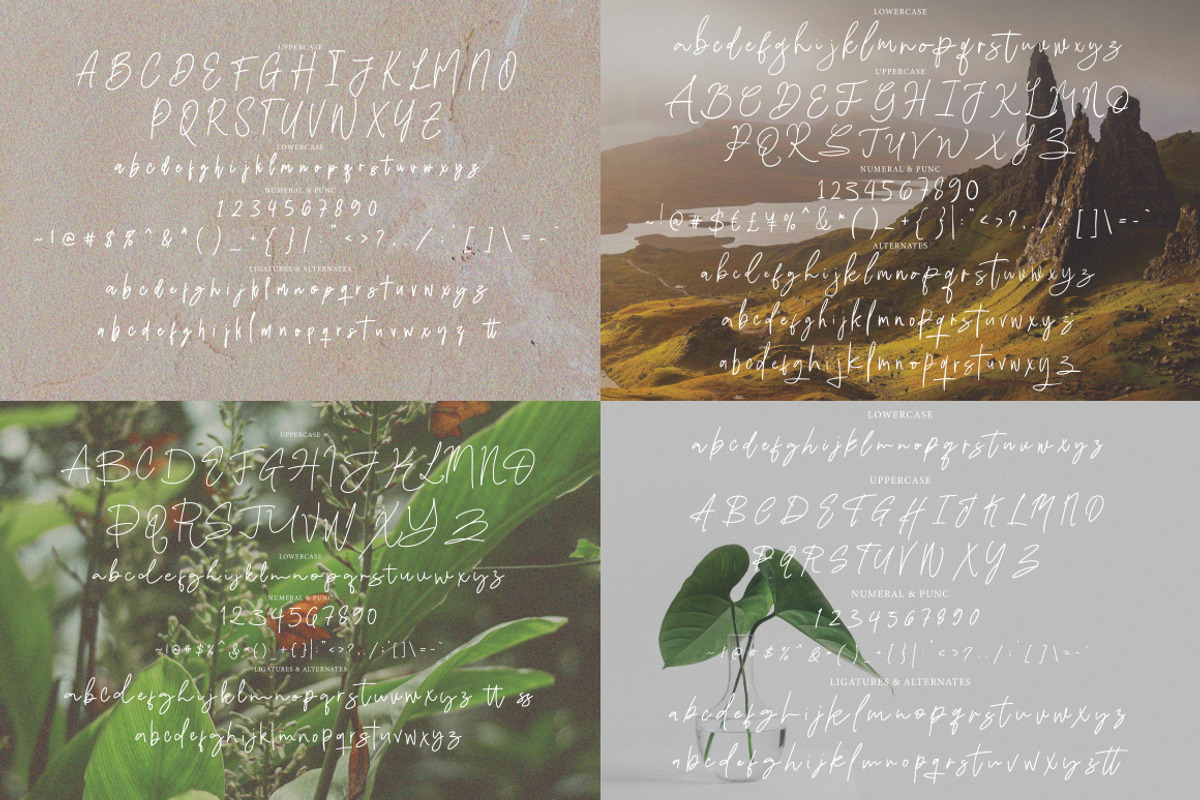 UPPERCASE
ABCDEFGHIJKLMNO
PQRSTUVWXYZ
LOWERCASE
abcdefghijklmnopqrstuvwxyz
NUMERAL & PUNC
1234567890
~!@#$%^&*()_+{}|:"<>?,./;'[]\=-`
LIGATURES & ALTERNATES
abcdefghijklmnopqrstuvwxyz
abcdefghijklmnopqrstuvwxyz tt
LOWERCASE
abcdefghijklmnopqrstuvwxyz
UPPERCASE
ABCDEFGHIJKLMNO
PQRSTUVWXYZ
NUMERAL & PUNC
1234567890
~!@#$€£¥%^&*()_+{}|:"<>?,./;'[]\=-`
ALTERNATES
abcdefghijklmnopqrstuvwxyz
abcdefghijklmnopqrstuvwxyz
abcdefghijklmnopqrstuvwxyz
UPPERCASE
ABCDEFGHIJKLMNO
PQRSTUVWXYZ
LOWERCASE
abcdefghijklmnopqrstuvwxyz
NUMERAL & PUNC
1234567890
~!@#$%^&*()_+{}|:"<>?,./;'[]\=-`
LIGATURES & ALTERNATES
abcdefghijklmnopqrstuvwxyz tt ss
abcdefghijklmnopqrstuvwxyz
LOWERCASE
abcdefghijklmnopqrstuvwxyz
UPPERCASE
ABCDEFGHIJKLMNO
PQRSTUVWXYZ
NUMERAL & PUNC
1234567890
~!@#$%^&*()_+{}|:"<>?,./;'[]\=-`
LIGATURES & ALTERNATES
abcdefghijklmnopqrstuvwxyz
abcdefghijklmnopqrstuvwxyztt